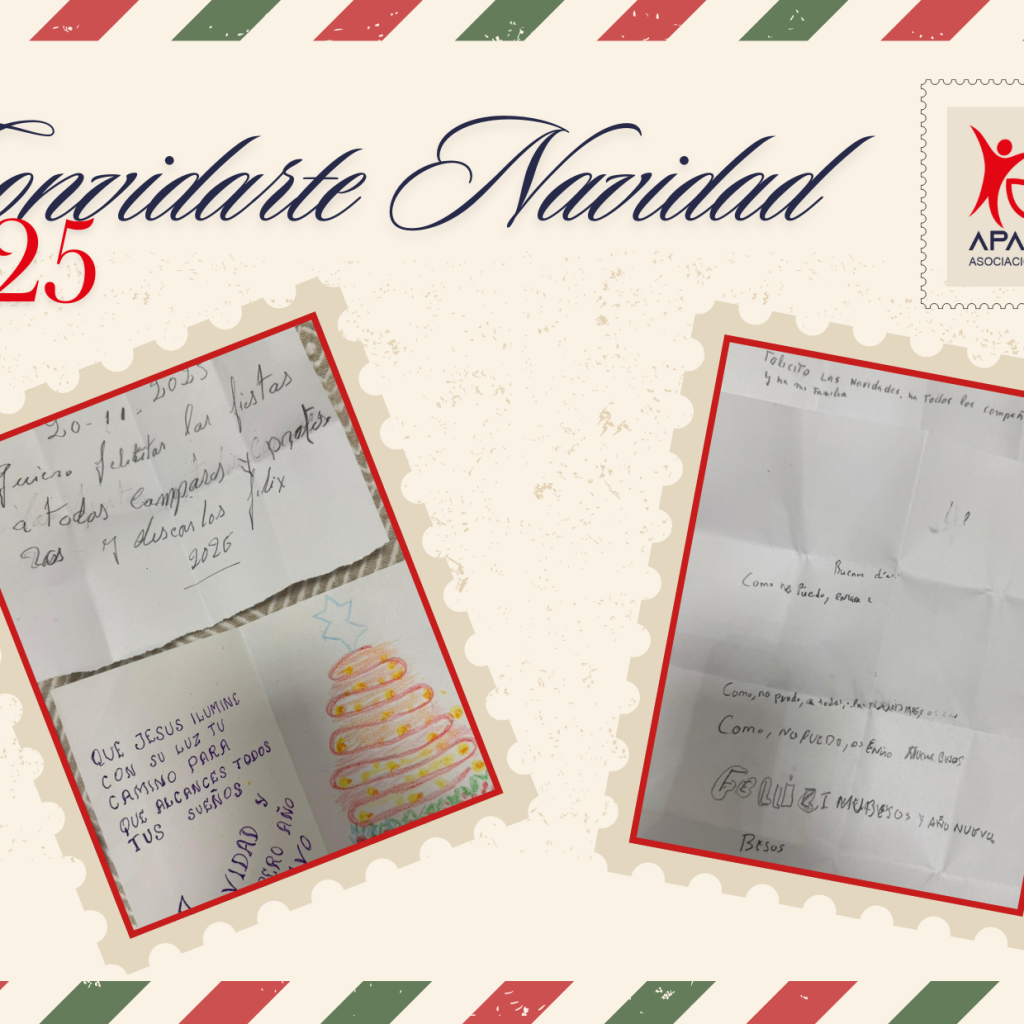 onvidarte Navidad
25
APA
ASOCIACIO
20-11-2025
Quiero felicitar las fiestas
a todas
y desearlos felix
2026
QUE JESUS ILUMINE
CON SU LUZ TU
CAMINO PARA
QUE ALCANCES TODOS
TUS SUEÑOS.
VIDAD y
PERO AÑO
VO
Felicito LAS Navidades, ha Todos los compañ
y ha mi Familia
Buenos día
Como no Puedo,
Como, no puedo, a todos,
Como, NO PUEDO, OS ENVIO
FELIZ
y AÑO NUEVO
Besos